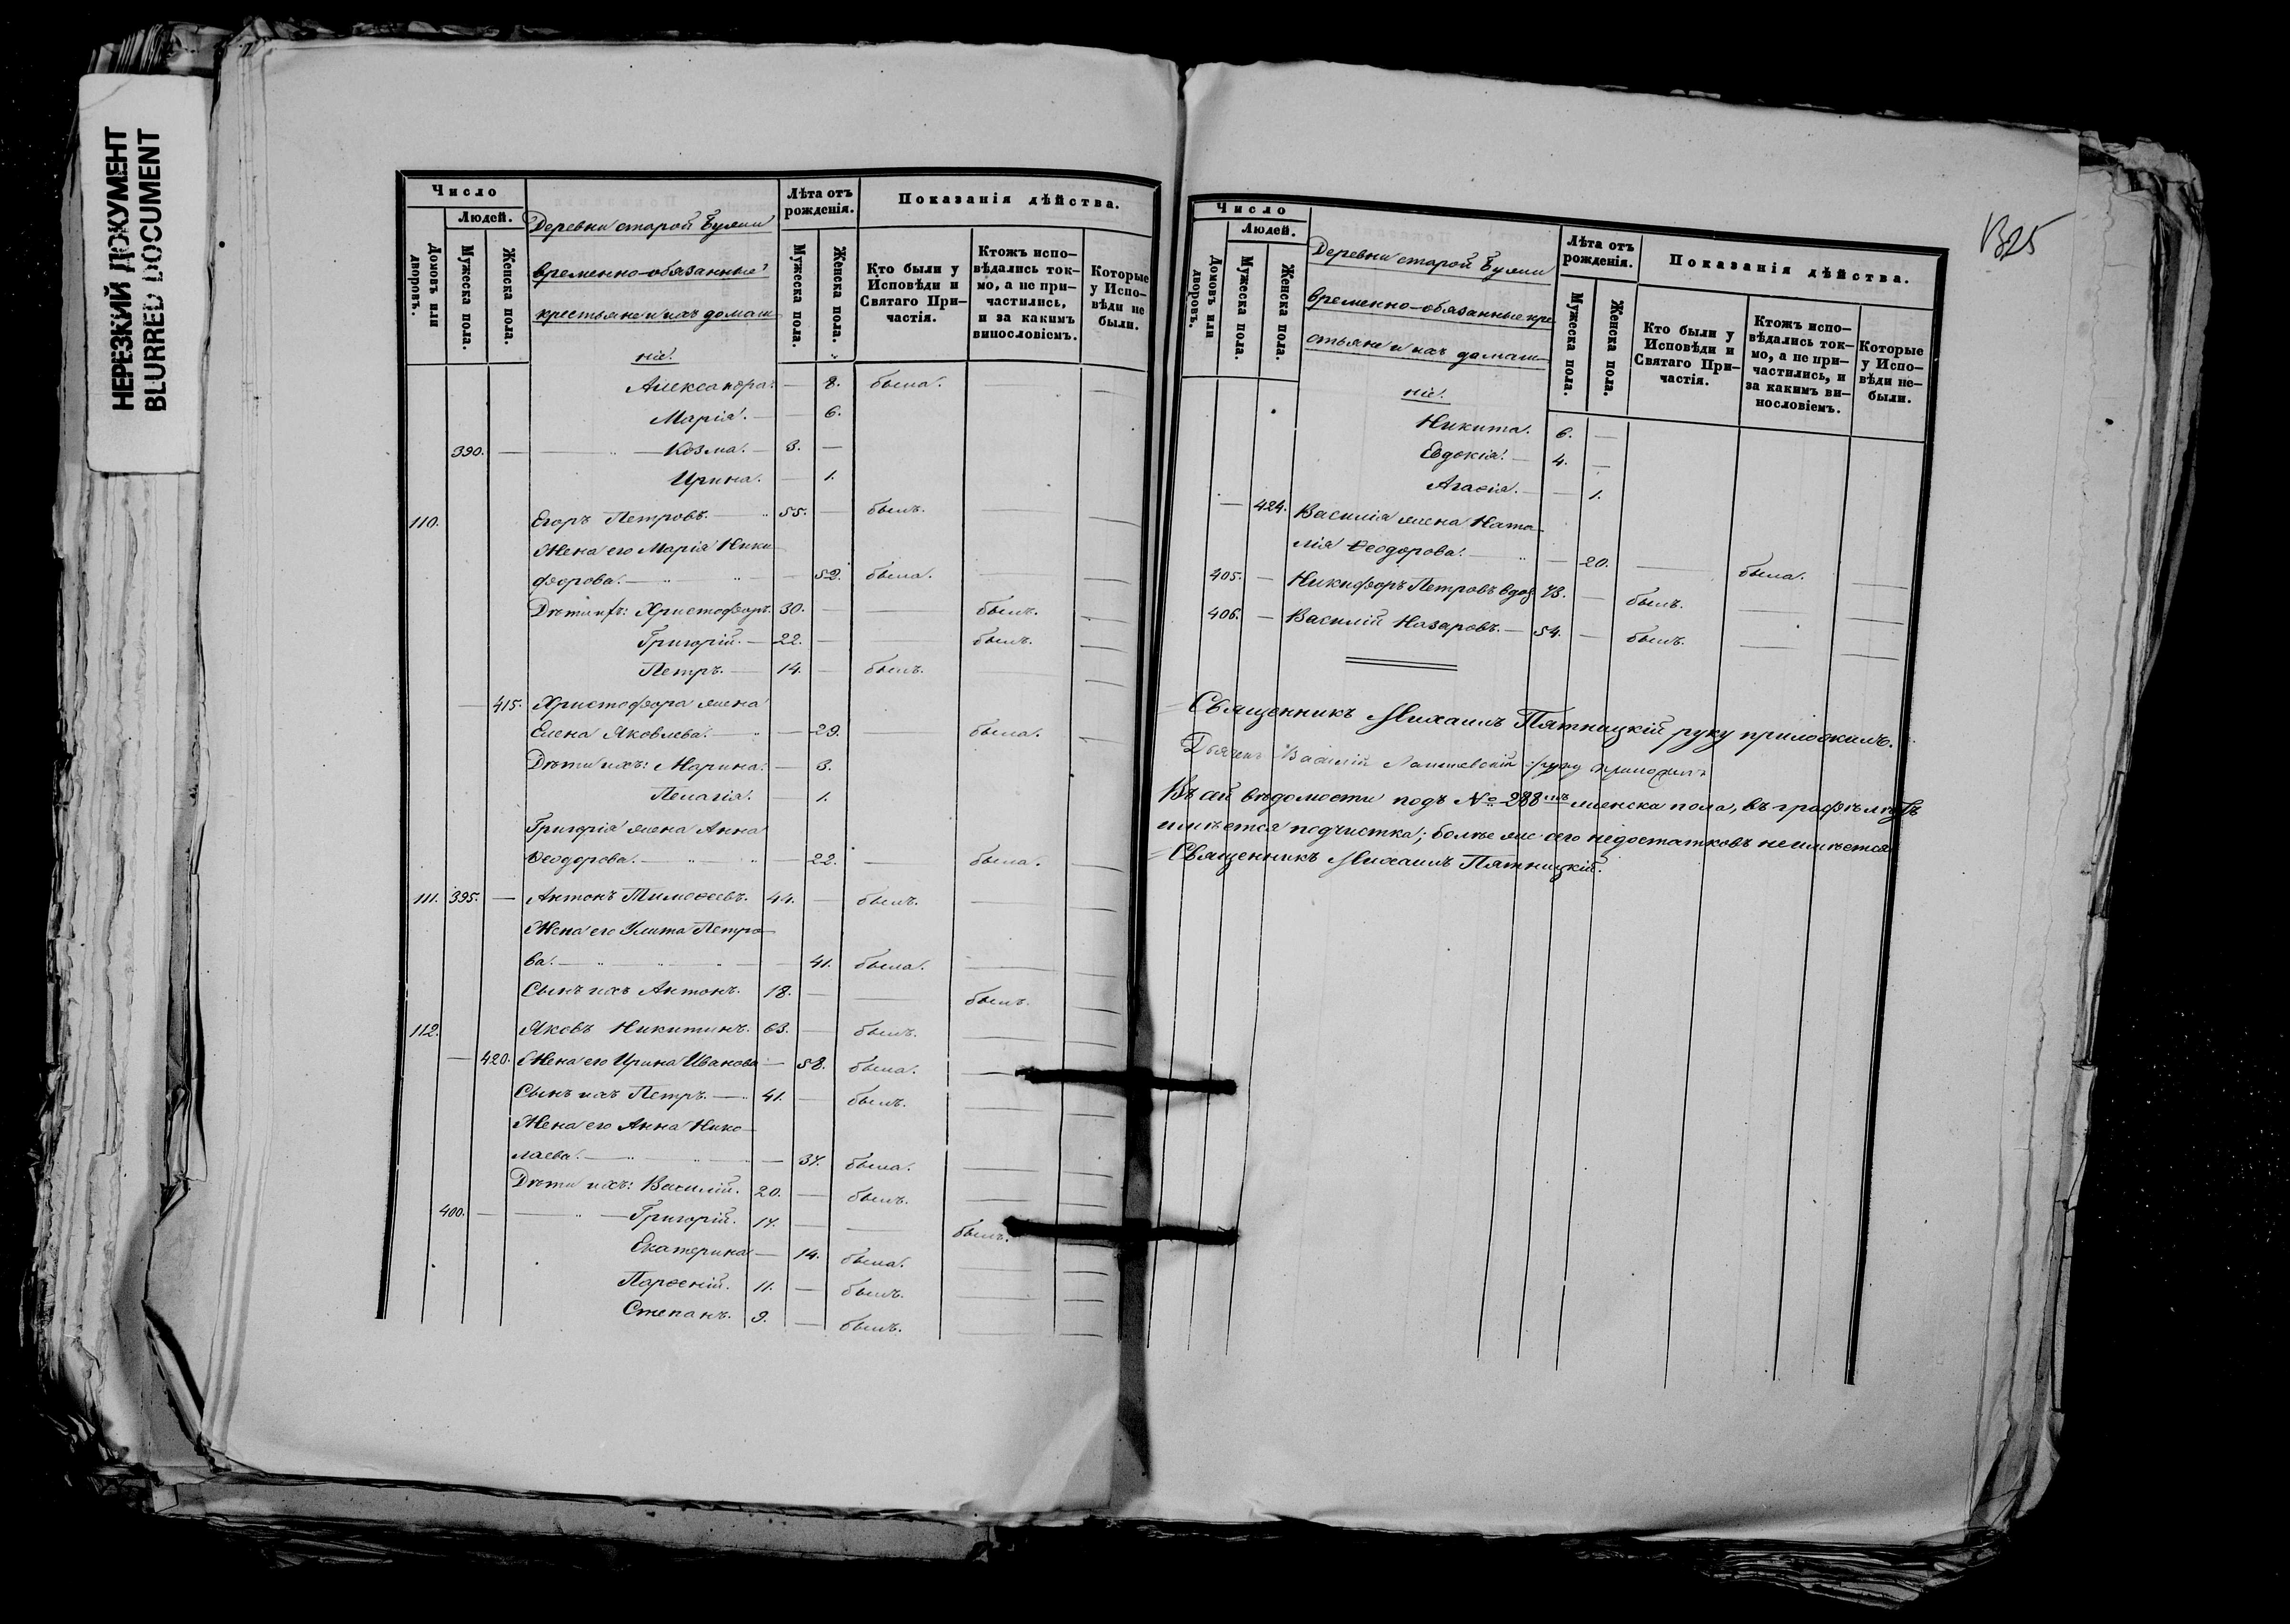 НЕРЕЗКИЙ ДОКУМЕНТ
BLURRED DOCUMENT
Число
Людей.
Домовъ или дворовъ.
Мужеска пола.
Женска пола.
Деревни старой
временно-обязанные
крестьяне и ихъ домаш
ніе.
Лѣта отъ рожденія.
Мужеска пола.
Женска пола.
Показанія дѣйства.
Кто были у Исповѣди и Святаго При-частія.
Ктожъ испо-вѣдались ток-мо, а не при-частились, и за какимъ винословіемъ.
Которые у Испо-вѣди не были.
Александра. — 8. была. — —
Марія. — — 6.
390. — — Козма. — 3. —
Ирина. — 1.
110. Егоръ Петровъ. — 55. — былъ. — —
Жена его Марія Ники
форова. — — 52. была. — —
Дѣти ихъ: Христофоръ. 30. — — былъ. —
Григорій. — 22. — — былъ. —
Петръ. — 14. — былъ. — —
— 415. Христофора жена
Елена Яковлева. — — 29. — была. —
Дѣти ихъ: Марина. — 3.
Пелагія. — 1.
Григорія жена Анна
Ѳеодорова. — — 22. — была. —
111. 395. — Антонъ Тимоѳеевъ. 44. — былъ. — —
Жена его Улита Петро
ва. — — — 41. была. — —
Сынъ ихъ Антонъ. 18. — — былъ. —
112. Яковъ Никитинъ. 63. — былъ. — —
— 420. Жена его Ирина Иванова — 58. была. —
Сынъ ихъ Петръ. — 41. — былъ. — —
Жена его Анна Нико
лаева. — — — 37. была. — —
Дѣти ихъ: Василій. 20. — былъ. — —
400. — — Григорій. 17. — — былъ. —
Екатерина — 14. была. — —
Парѳеній. 11. — былъ. — —
Степанъ. 9. — былъ. — —
Число
Людей.
Домовъ или дворовъ.
Мужеска пола.
Женска пола.
Деревни старой
временно-обязанные кре
стьяне и ихъ домаш—
ніе.
Лѣта отъ рожденія.
Мужеска пола.
Женска пола.
Показанія дѣйства.
Кто были у Исповѣди и Святаго При-частія.
Ктожъ испо-вѣдались ток-мо, а не при-частились, и за какимъ ви-нословіемъ.
Которые у Испо-вѣди не-были.
Никита. 6. —
Евдокія. — 4. —
Агаѳія. — — 1.
— 424. Василія жена Ната—
лія Ѳеодорова. — — 20. — была. —
405. — Никифоръ Петровъ вдов 73. — былъ. — —
406. — Василій Назаровъ. — 54. — былъ. — —
Священникъ Михаилъ Пятницкій руку приложилъ.
Дьячекъ Василій руку приложилъ
Въ сей вѣдомости подъ № 288мъ женска пола, въ графѣ лѣтъ
имѣется подчистка; болѣе же сего недостатковъ не имѣется
Священникъ Михаилъ Пятницкій.